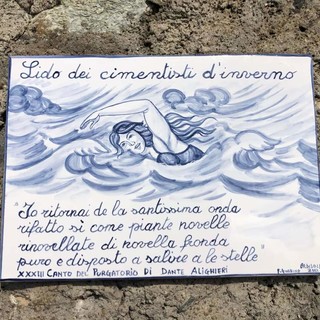 Lido dei cimentisti d'inverno
"Io ritornai de la santissima onda
rifatto sì come piante novelle
rinovellate di novella fronda
puro e disposto a salire a le stelle"
XXXIII CANTO DEL PURGATORIO DI DANTE ALIGHIERI